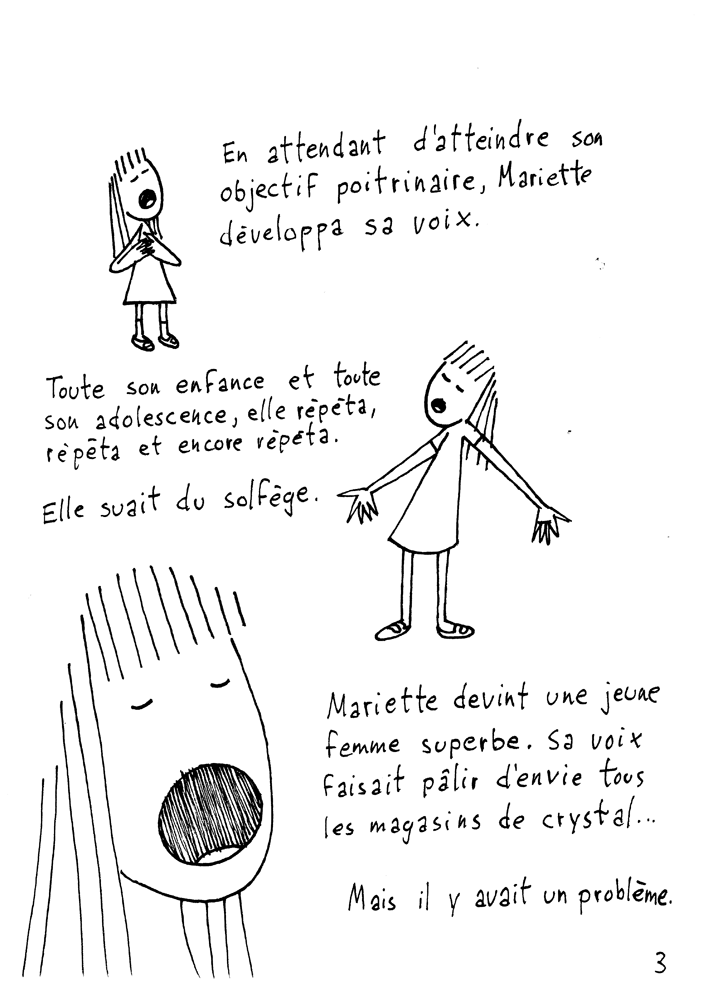 En attendant d'atteindre son
objectif poitrinaire, Mariette
développa sa voix.
Toute son enfance et toute
son adolescence, elle rèpéta,
rèpéta et encore rèpéta.
Elle suait du solfège.
Mariette devint une jeune
femme superbe. Sa voix
faisait pâlir d'envie tous
les magasins de crystal...
Mais il y avait un problème.
3